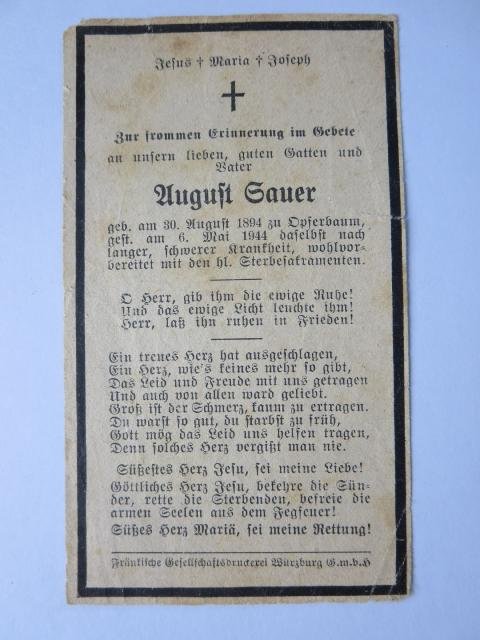 Jesus † Maria † Joseph
Zur frommen Erinnerung im Gebete
an unsern lieben, guten Gatten und
Vater
August Sauer
geb. am 30. August 1894 zu Opferbaum,
gest. am 6. Mai 1944 daselbst nach
langer, schwerer Krankheit, wohlvor-
bereitet mit den hl. Sterbesakramenten.
O Herr, gib ihm die ewige Ruhe!
Und das ewige Licht leuchte ihm!
Herr, laß ihn ruhen in Frieden!
Ein treues Herz hat ausgeschlagen,
Ein Herz, wie's keines mehr so gibt,
Das Leid und Freude mit uns getragen
Und auch von allen ward geliebt.
Groß ist der Schmerz, kaum zu ertragen.
Du warst so gut, du starbst zu früh,
Gott mög das Leid uns helfen tragen,
Denn solches Herz vergißt man nie.
Süßestes Herz Jesu, sei meine Liebe!
Göttliches Herz Jesu, bekehre die Sün-
der, rette die Sterbenden, befreie die
armen Seelen aus dem Fegfeuer!
Süßes Herz Mariä, sei meine Rettung!
Fränkische Gesellschaftsdruckerei Würzburg G.m.b.H